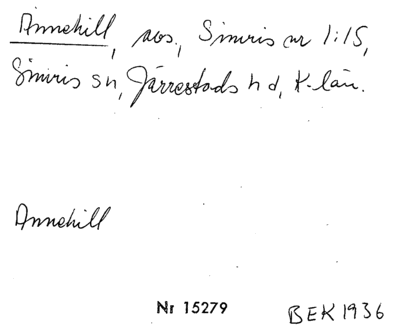 Annehill, avs., Simris nr 1:15,
Simris sn, Järrestads hd, K-län.
Annehill
Nr 15279 BEK 1936